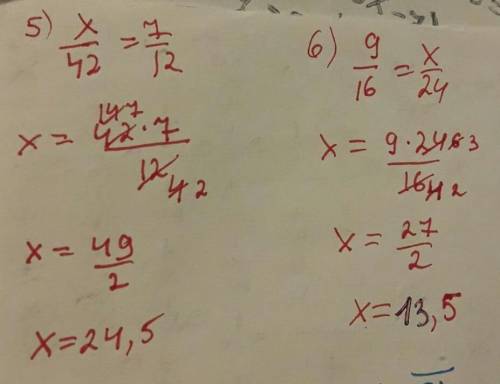 5) x/42 = 7/12
x = 42·7/12 14 7 4 2
x = 49/2
x = 24,5
6) 9/16 = x/24
x = 9·24/16 6 3 4 2
x = 27/2
x = 13,5